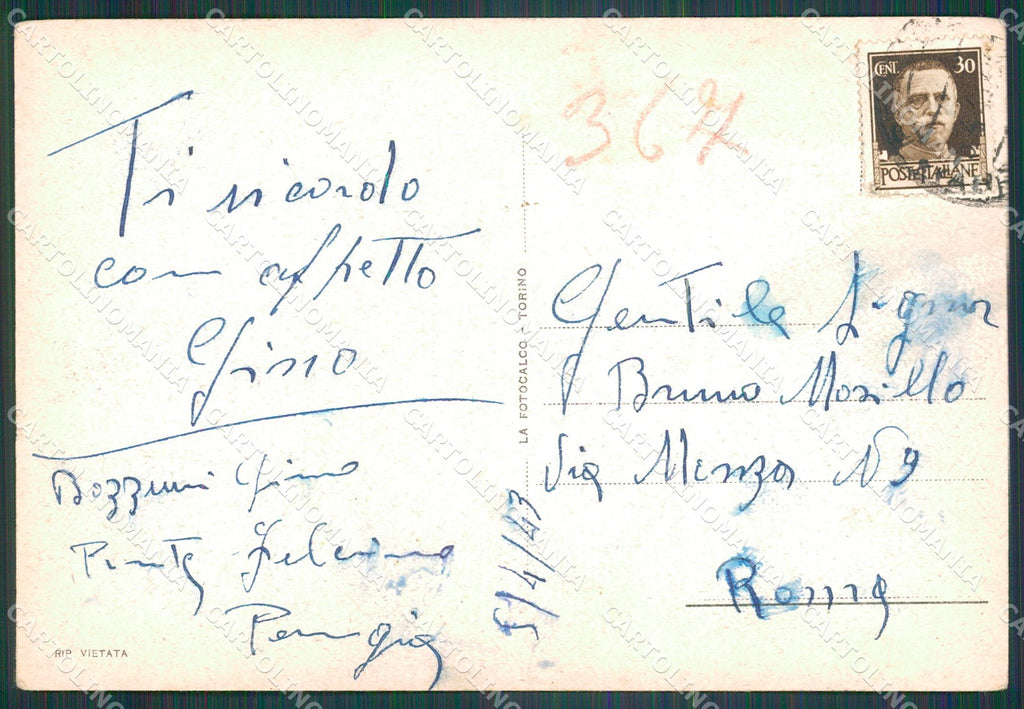 Ti ricordo
con affetto
Gino
Gino
Perugia
RIP. VIETATA
LA FOTOCALCO - TORINO
5/4/43
367
CENT. 30
POSTE ITALIANE
Gentile
Bruno Morillo
Via Monza N 9
Roma
CARTOLINOMANIA